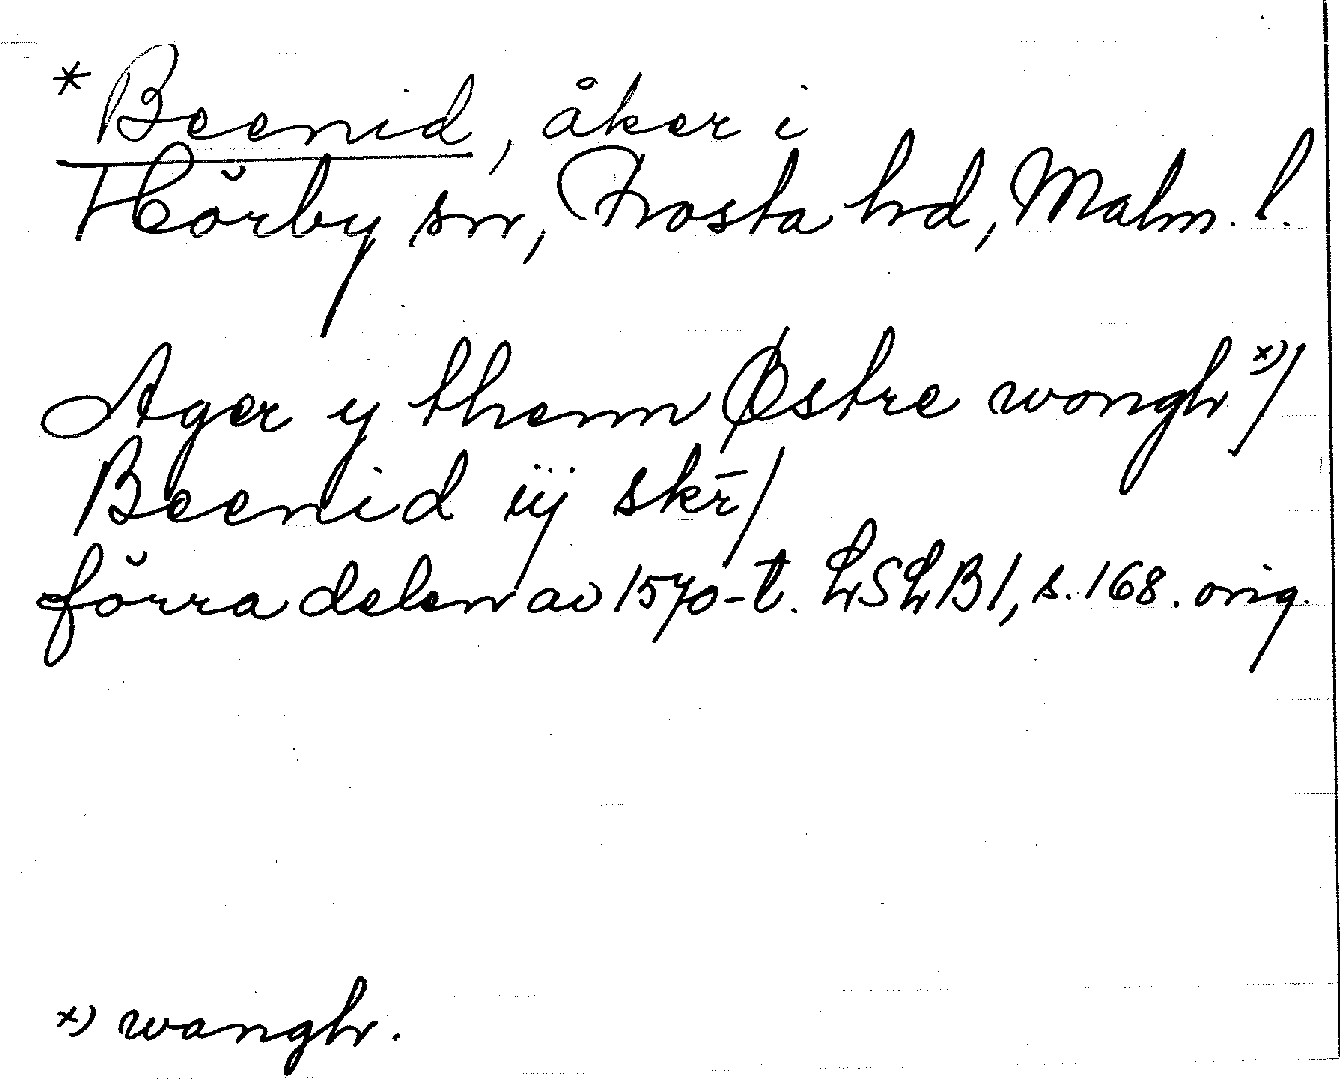 * Beenid, åker i
Hörby sn, Frosta hd, Malm. l.
Ager y thenn Østre wongh x)/
Beenid iij skr̄/
förra delen av 1570-t. LSLB 1, s. 168. orig.
x) wangh.